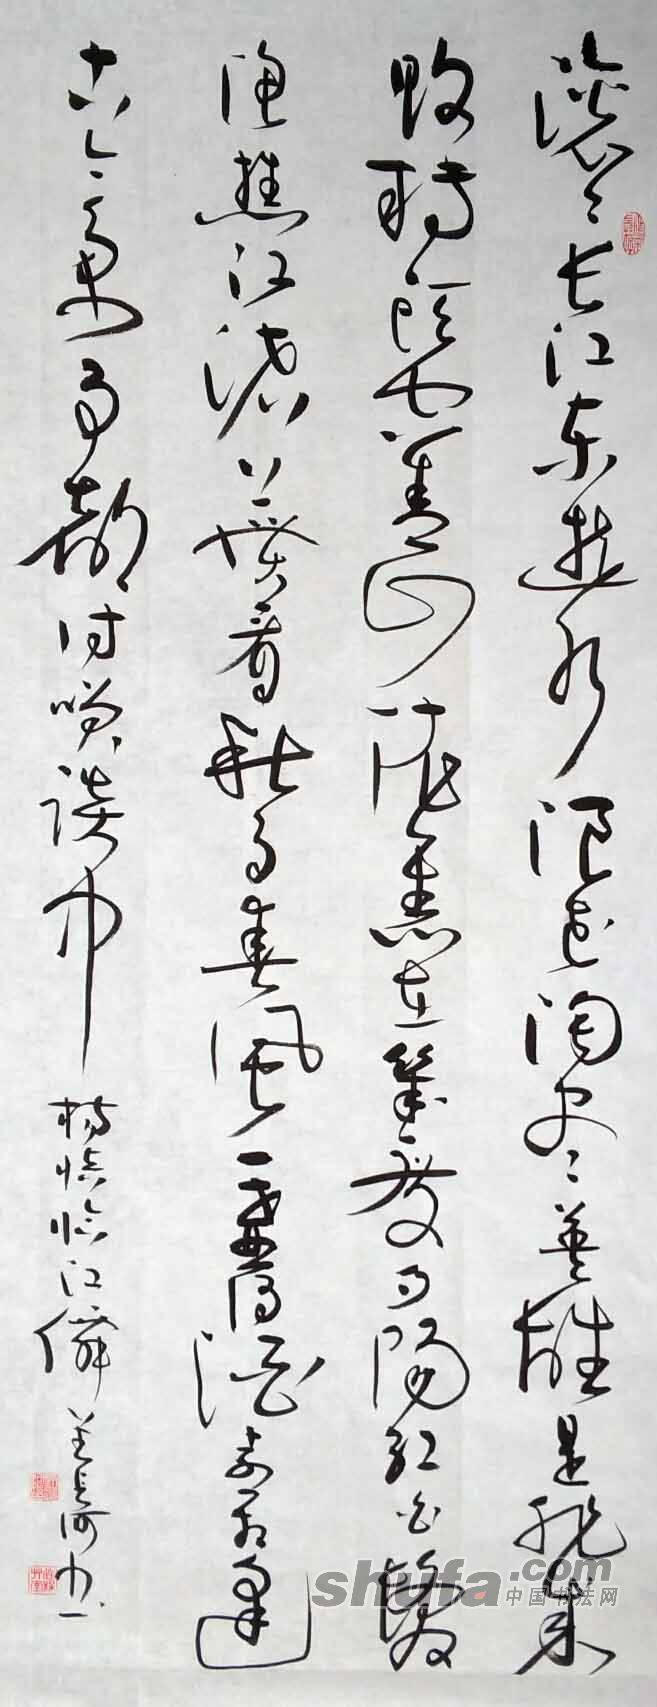 滚〻长江东逝水浪花淘尽英雄是非成
败转头空青山依舊在幾度夕陽红白髮
渔樵江渚上惯看秋月春风一壶濁酒喜相逢
古今多少事都付笑谈中
杨慎临江僊 姜長河书
shufa.com
中国书法网